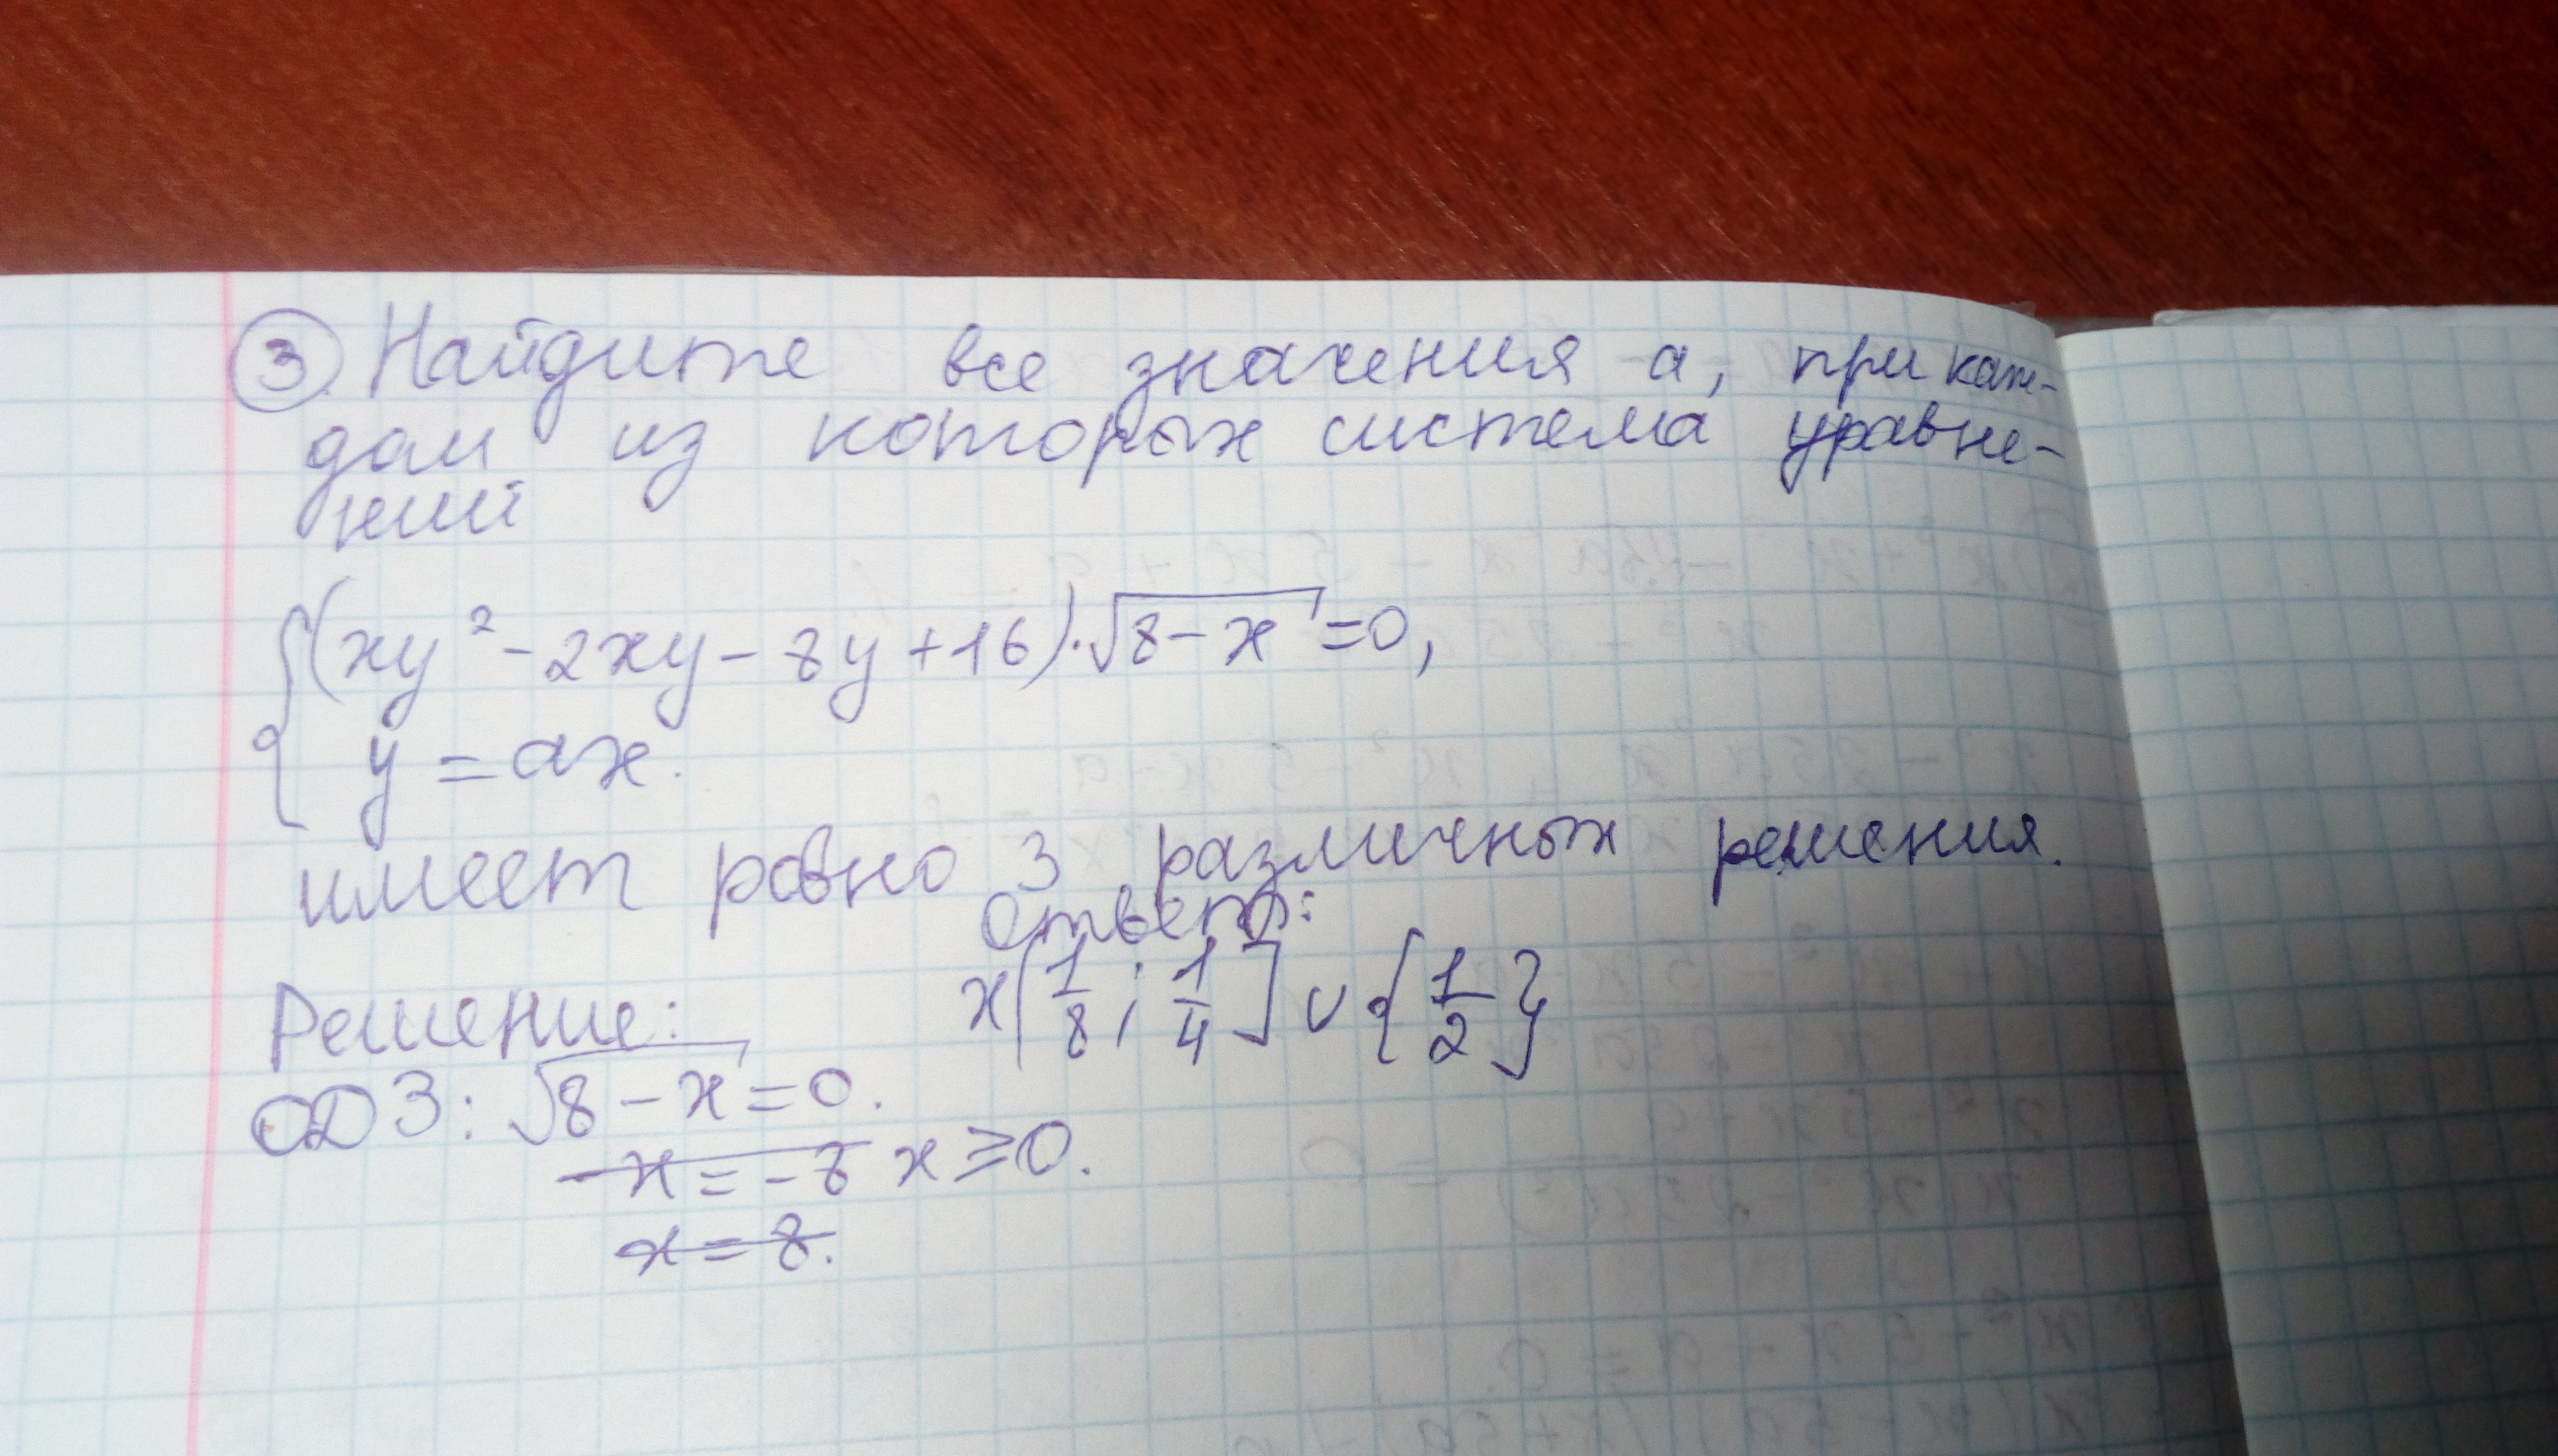 ③. Найдите все значения а, при каж-
дом из которых система уравне-
ний
{(xy² - 2xy - 8y + 16)·√(8-x) = 0,
y = ax.
имеет ровно 3 различных решения.
Ответ:
x(1/8; 1/4] ∪ {1/2}
Решение:
ОДЗ: √(8-x) = 0.
-x = -8 x ≥ 0.
x = 8.